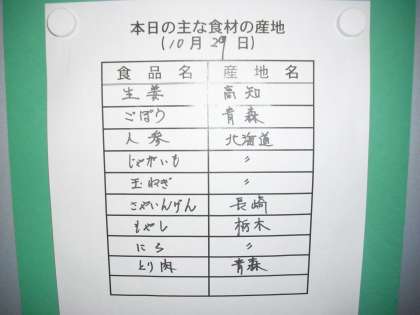 本日の主な食材の産地
(10月29日)
食品名 産地名
生姜 高知
ごぼう 青森
人参 北海道
じゃがいも 〃
玉ねぎ 〃
さやいんげん 長崎
もやし 栃木
にら 〃
とり肉 青森